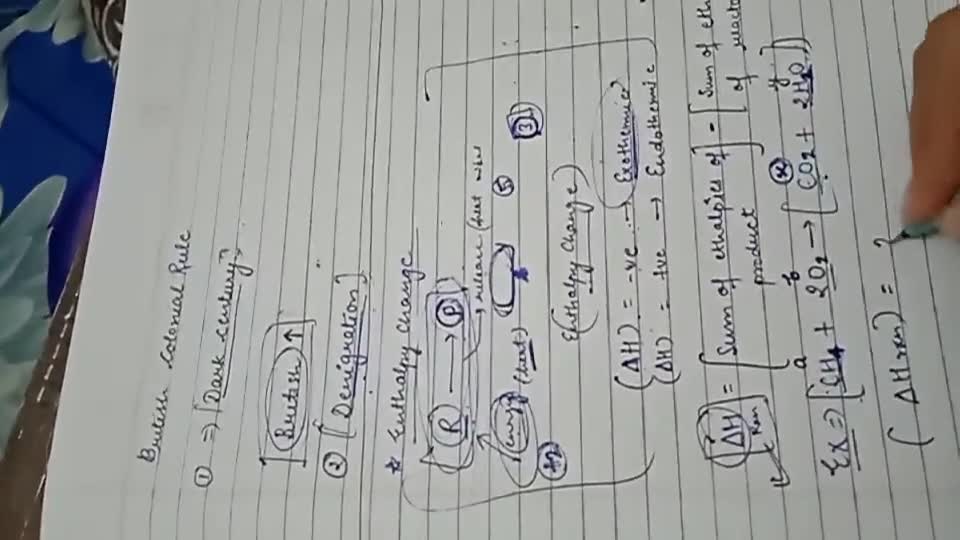 British Colonial Rule
① ⇒ [Dark century]
[British ↑]
② [Designation]
☆ Enthalpy Change
[R → P]
release (heat
energy (heat)
+2
⑤
③
(Enthalpy Change)
(ΔH) = -ve → Exothermic
(ΔH) = +ve → Endothermic
(ΔH) Rxn = [Sum of ethalpies of product] - [Sum of eth of reacta
a b x y
Ex ⇒ [CH4 + 2O2 → [CO2 + 2H2O]
(ΔH rxn) = ?